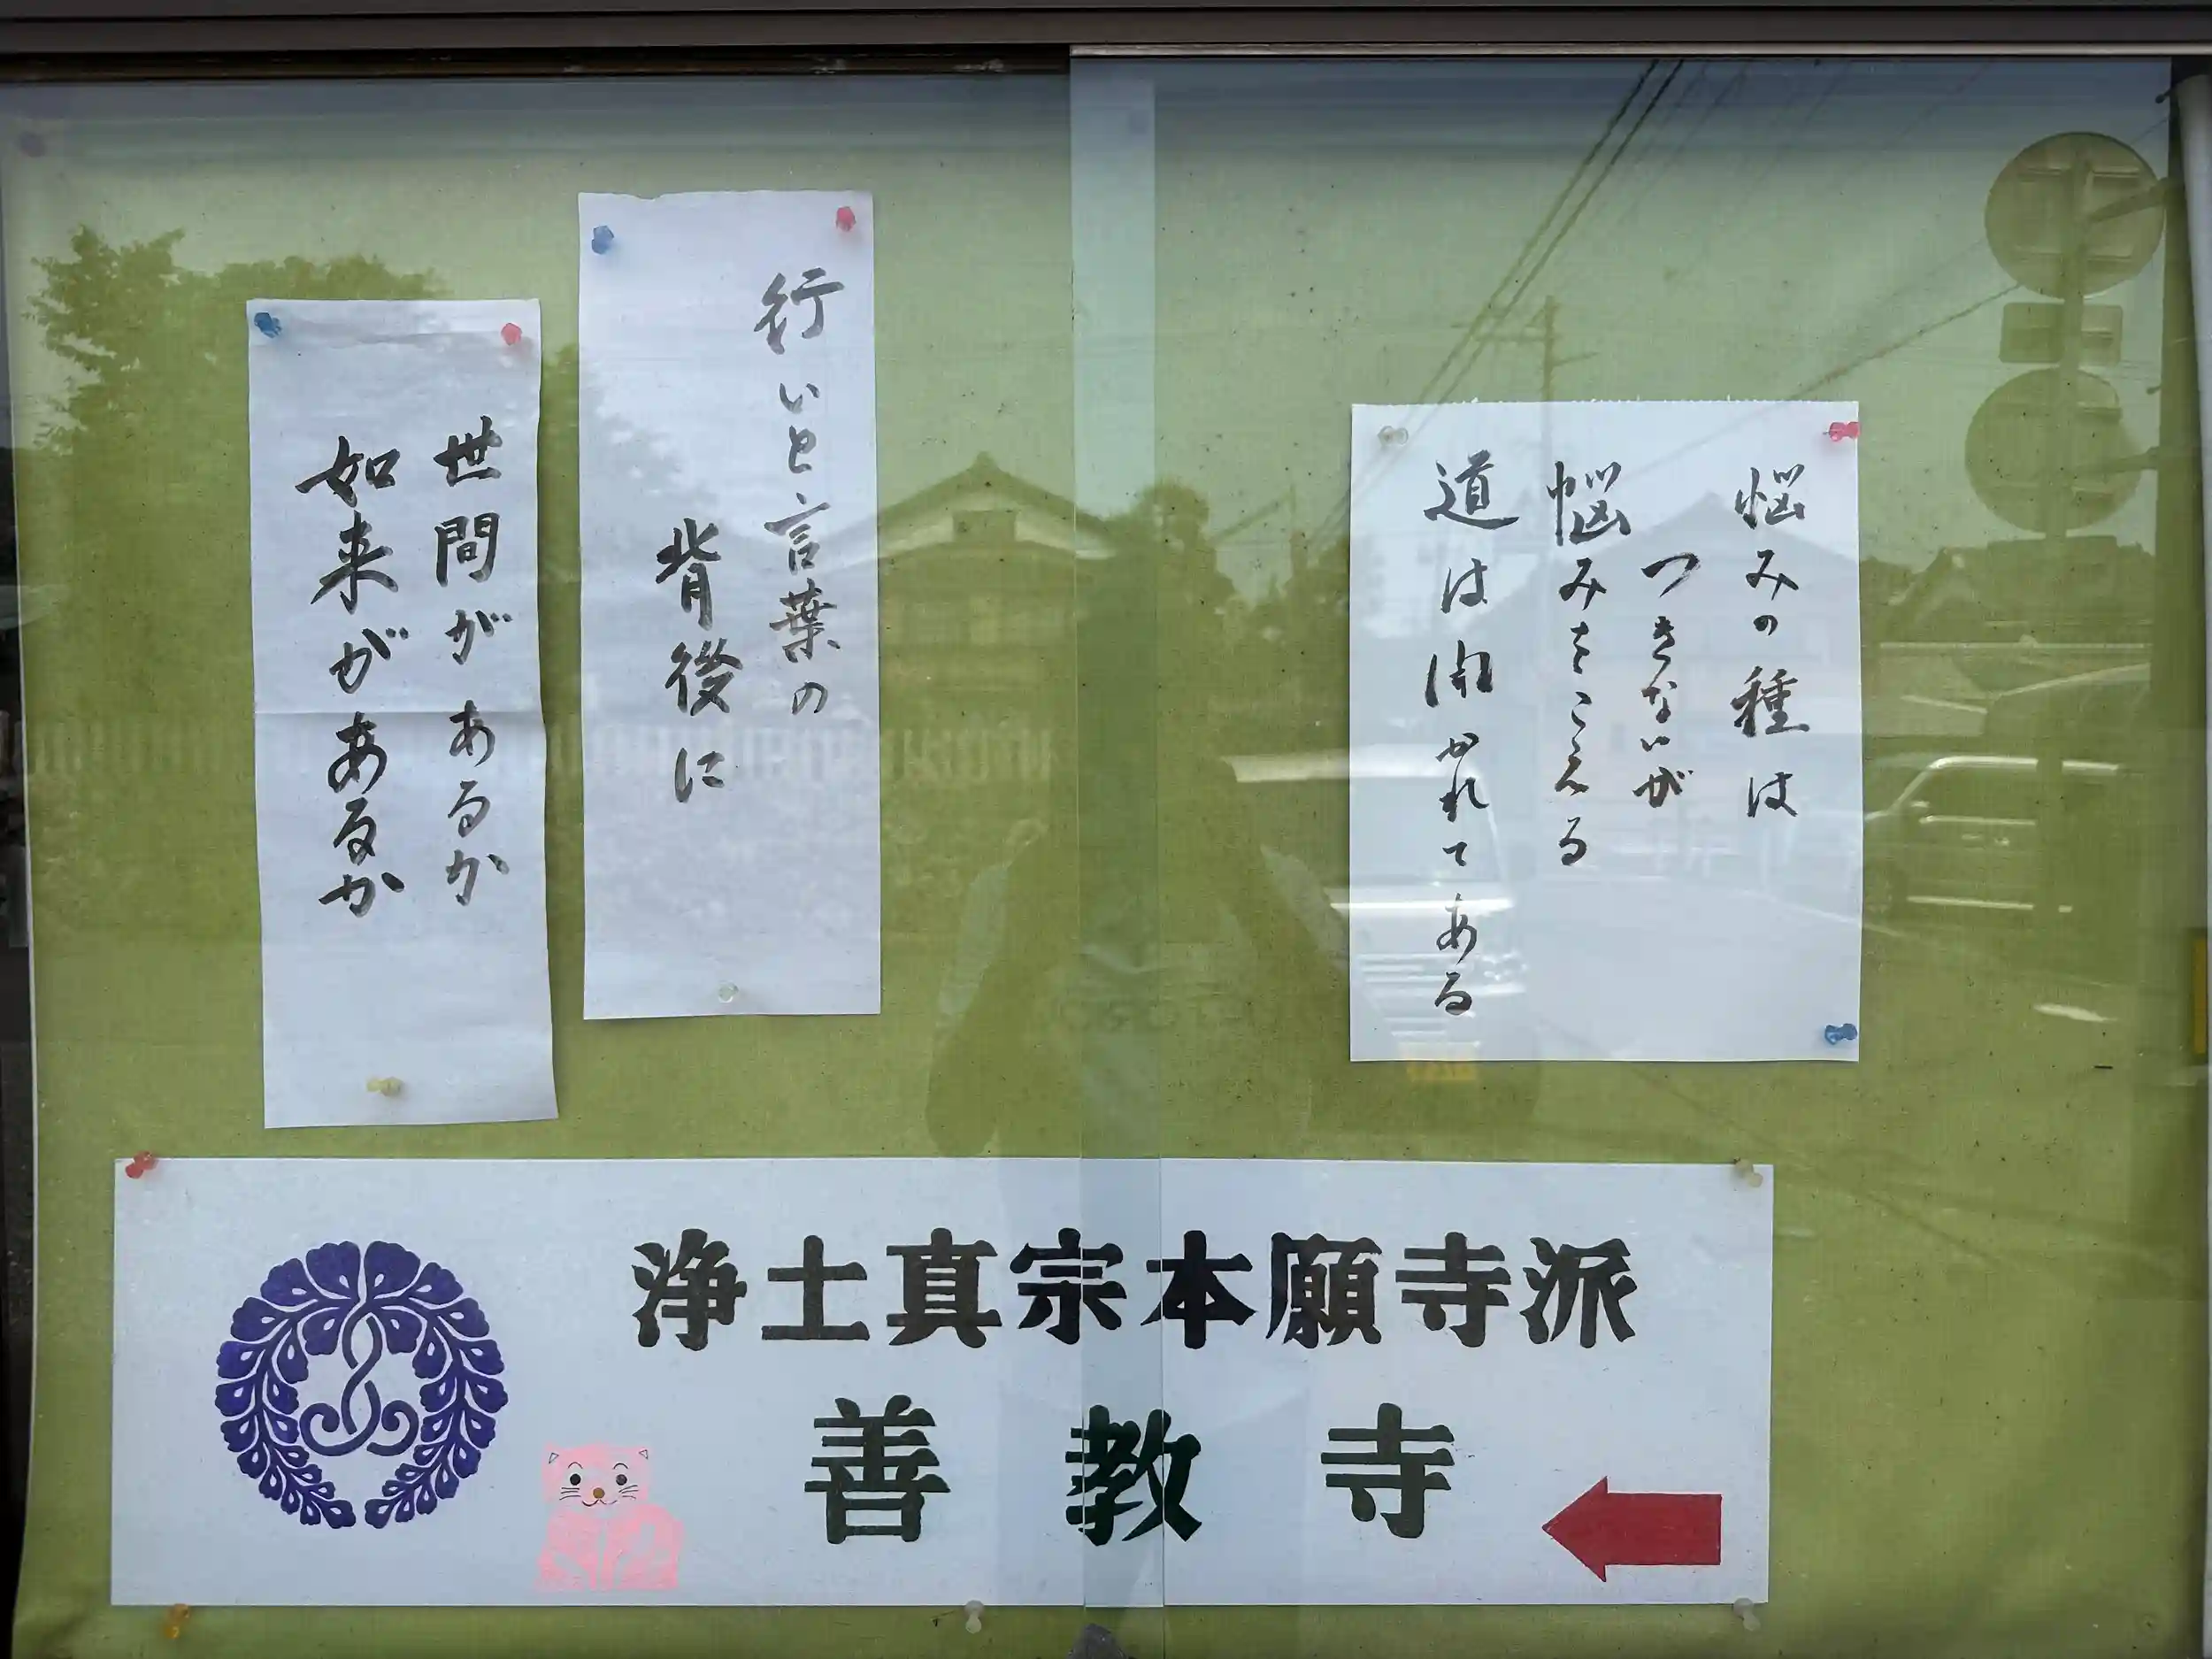 悩みの種は
つきないが
悩みをこえる
道は開かれてある
行いと言葉の
背後に
世間があるか
如来があるか
浄土真宗本願寺派
善教寺